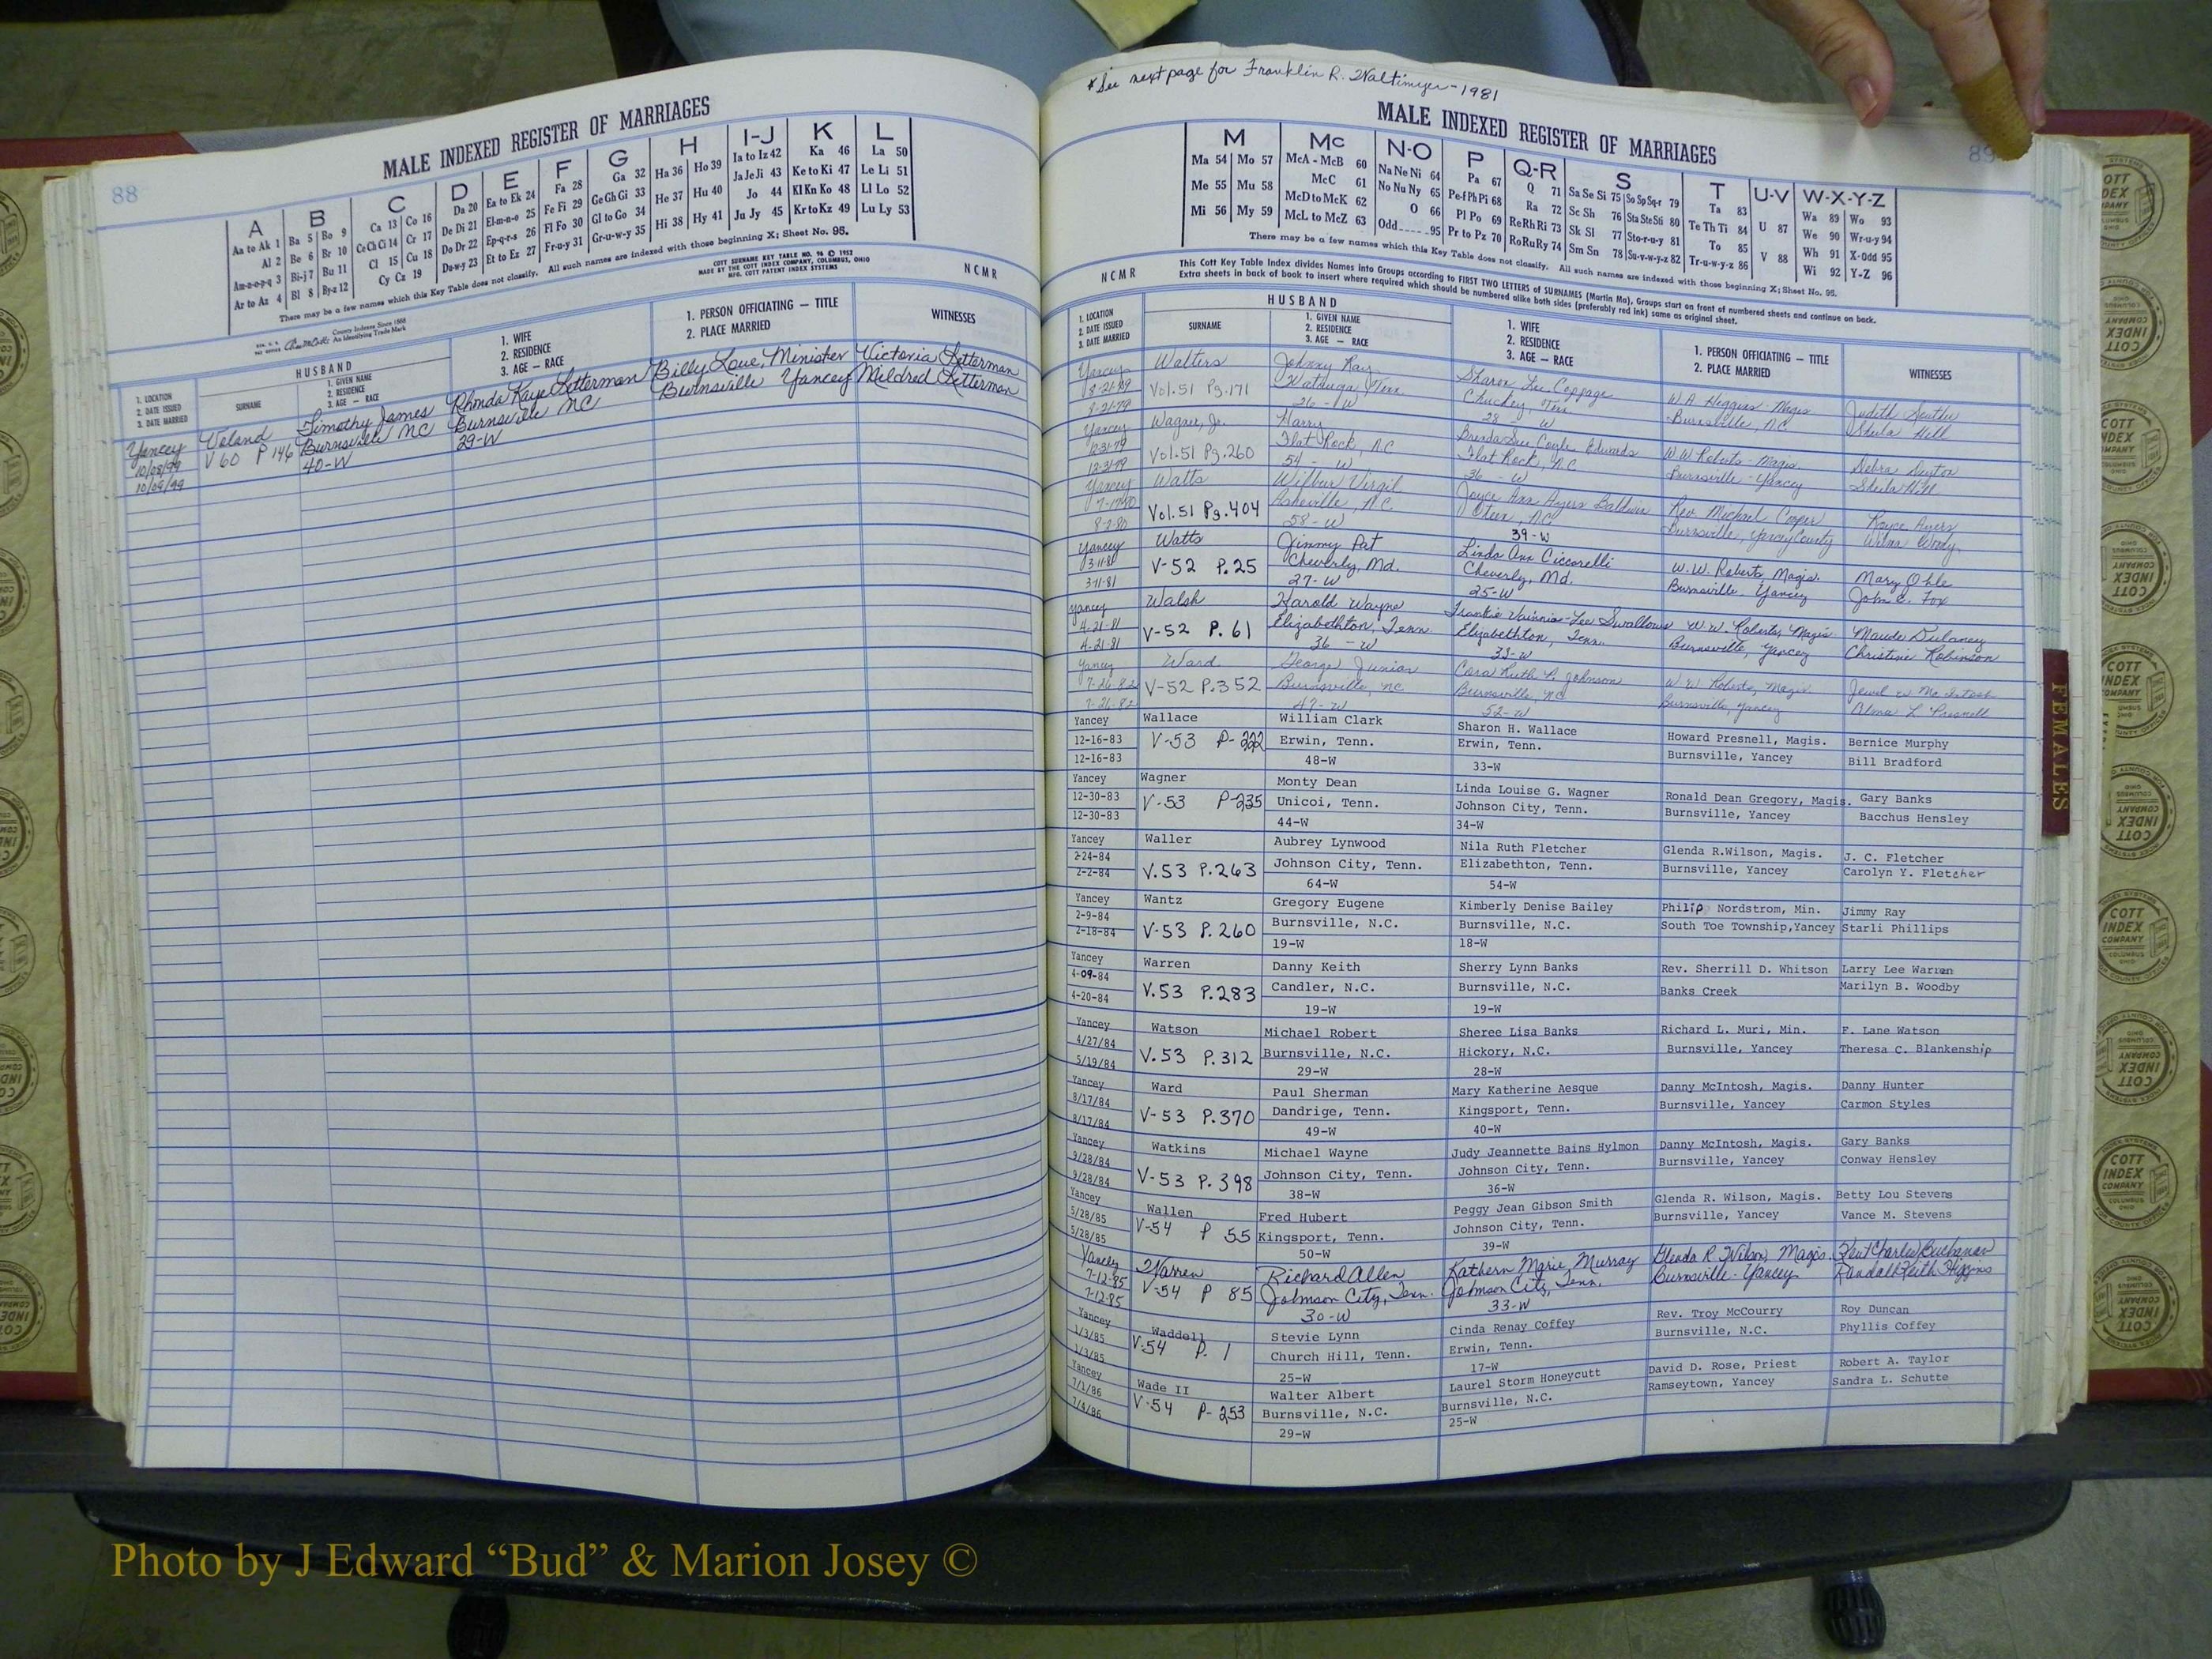 88
MALE INDEXED REGISTER OF MARRIAGES
A B C D E F G H I-J K L
Aa to Ak 1 Ba 5 Bo 9 Ca 13 Co 16 Da 20 Ea to Ek 24 Fa 28 Ga 32 Ha 36 Ho 39 Ia to Iz 42 Ka 46 La 50
Al 2 Be 6 Br 10 Ce Ch Ci 14 Cr 17 De Di 21 El-m-n-o 25 Fe Fi 29 Ge Gh Gi 33 He 37 Hu 40 Ja Je Ji 43 Ke to Ki 47 Le Li 51
Am-n-o-p-q 3 Bi-j 7 Bu 11 Cl 15 Cu 18 Do Dr 22 Ep-q-r-s 26 Fl Fo 30 Gl to Go 34 Hi 38 Hy 41 Jo 44 Kl Kn Ko 48 Ll Lo 52
Ar to Az 4 Bl 8 By-z 12 Cy Cz 19 Du-w-y 23 Et to Ez 27 Fr-u-y 31 Gr-u-w-y 35 Ju Jy 45 Kr to Kz 49 Lu Ly 53
There may be a few names which this Key Table does not classify. All such names are indexed with those beginning X; Sheet No. 95.
County Indexes Since 1888
An Identifying Trade Mark
COTT SURNAME KEY TABLE NO. 96 © 1952
MADE BY THE COTT INDEX COMPANY, COLUMBUS, OHIO
MFG. COTT PATENT INDEX SYSTEMS
NCMR
1. LOCATION
2. DATE ISSUED
3. DATE MARRIED
HUSBAND
SURNAME
1. GIVEN NAME
2. RESIDENCE
3. AGE — RACE
1. WIFE
2. RESIDENCE
3. AGE — RACE
1. PERSON OFFICIATING — TITLE
2. PLACE MARRIED
WITNESSES
Yancey Veland Timothy James Rhonda Kaye Letterman Billy Loue, Minister Victoria Letterman
10/08/99 V 60 P 146 Burnsville NC Burnsville NC Burnsville Yancey Mildred Letterman
10/09/99 40-W 29-W
*See next page for Franklin R. Waltimyer-1981
MALE INDEXED REGISTER OF MARRIAGES
89
M Mc N-O P Q-R S T U-V W-X-Y-Z
Ma 54 Mo 57 McA - McB 60 Na Ne Ni 64 Pa 67 Q 71 Sa Se Si 75 So Sp Sq-r 79 Ta 83 U 87 Wa 89 Wo 93
Me 55 Mu 58 McC 61 No Nu Ny 65 Pe-f Ph Pi 68 Ra 72 Sc Sh 76 Sta Ste Sti 80 Te Th Ti 84 We 90 Wr-u-y 94
Mi 56 My 59 McD to McK 62 O 66 Pl Po 69 Re Rh Ri 73 Sk Sl 77 Sto-r-u-y 81 To 85 V 88 Wh 91 X-Odd 95
McL to McZ 63 Odd.....95 Pr to Pz 70 Ro Ru Ry 74 Sm Sn 78 Su-v-w-y-z 82 Tr-u-w-y-z 86 Wi 92 Y-Z 96
There may be a few names which this Key Table does not classify. All such names are indexed with those beginning X; Sheet No. 95.
NCMR
This Cott Key Table Index divides Names into Groups according to FIRST TWO LETTERS of SURNAMES (Martin Ma), Groups start on front of numbered sheets and continue on back.
Extra sheets in back of book to insert where required which should be numbered alike both sides (preferably red ink) same as original sheet.
1. LOCATION
2. DATE ISSUED
3. DATE MARRIED
HUSBAND
SURNAME
1. GIVEN NAME
2. RESIDENCE
3. AGE — RACE
1. WIFE
2. RESIDENCE
3. AGE — RACE
1. PERSON OFFICIATING — TITLE
2. PLACE MARRIED
WITNESSES
Yancey Walters Johnny Ray Sharon Lee Coppage W.A. Higgins-Magis Judith
8-21-79 Vol.51 Pg.171 Watauga, Tenn. Chuckey, Tenn Burnsville, NC Sheila Hill
8-21-79 26-W 28-W
Yancey Wagner, Jr. Harry Brenda Sue Coyle Edwards W.W. Roberts-Magis Debra
12-31-79 Vol.51 Pg.260 Flat Rock, NC Flat Rock, NC Burnsville-Yancey Sheila Hill
12-31-79 54-W 36-W
Yancey Watts Wilbur Virgil Joyce Ann Ayers Baldwin Rev. Michael Cooper Royce Ayers
7-17-80 Vol.51 Pg.404 Asheville, N.C. Oteen, NC Burnsville, Yancey County Wilma Woody
8-2-80 58-W 39-W
Yancey Watts Jimmy Pat Linda Ann Ciccorelli W.W. Roberts, Magis. Mary Ohle
3-11-81 V-52 P.25 Cheverly, Md. Cheverly, Md. Burnsville-Yancey John C. Fox
3-11-81 27-W 25-W
Yancey Walsh Harold Wayne Frankie Lee Swallows W.W. Roberts, Magis. Maude Dulaney
4-21-81 V-52 P. 61 Elizabethton, Tenn. Elizabethton, Tenn. Burnsville, Yancey Christine Robinson
4-21-81 36-W 33-W
Yancey Ward George Junior Cora Ruth P. Johnson W.W. Roberts, Magis. Jewel W McIntosh
7-26-82 V-52 P.352 Burnsville, NC Burnsville, NC Burnsville, Yancey Alma L Presnell
7-26-82 47-W 52-W
Yancey Wallace William Clark Sharon H. Wallace Howard Presnell, Magis. Bernice Murphy
12-16-83 V-53 P-222 Erwin, Tenn. Erwin, Tenn. Burnsville, Yancey Bill Bradford
12-16-83 48-W 33-W
Yancey Wagner Monty Dean Linda Louise G. Wagner Ronald Dean Gregory, Magis. Gary Banks
12-30-83 V-53 P-235 Unicoi, Tenn. Johnson City, Tenn. Burnsville, Yancey Bacchus Hensley
12-30-83 44-W 34-W
Yancey Waller Aubrey Lynwood Nila Ruth Fletcher Glenda R.Wilson, Magis. J. C. Fletcher
2-24-84 V.53 P.263 Johnson City, Tenn. Elizabethton, Tenn. Burnsville, Yancey Carolyn Y. Fletcher
2-2-84 64-W 54-W
Yancey Wantz Gregory Eugene Kimberly Denise Bailey Philip Nordstrom, Min. Jimmy Ray
2-9-84 V-53 P.260 Burnsville, N.C. Burnsville, N.C. South Toe Township,Yancey Starli Phillips
2-18-84 19-W 18-W
Yancey Warren Danny Keith Sherry Lynn Banks Rev. Sherrill D. Whitson Larry Lee Warren
4-09-84 V.53 P.283 Candler, N.C. Burnsville, N.C. Banks Creek Marilyn B. Woodby
4-20-84 19-W 19-W
Yancey Watson Michael Robert Sheree Lisa Banks Richard L. Muri, Min. F. Lane Watson
4/27/84 V.53 P.312 Burnsville, N.C. Hickory, N.C. Burnsville, Yancey Theresa C. Blankenship
5/19/84 29-W 28-W
Yancey Ward Paul Sherman Mary Katherine Aesque Danny McIntosh, Magis. Danny Hunter
8/17/84 V-53 P.370 Dandrige, Tenn. Kingsport, Tenn. Burnsville, Yancey Carmon Styles
8/17/84 49-W 40-W
Yancey Watkins Michael Wayne Judy Jeannette Bains Hylmon Danny McIntosh, Magis. Gary Banks
9/28/84 V-53 P.398 Johnson City, Tenn. Johnson City, Tenn. Burnsville, Yancey Conway Hensley
9/28/84 38-W 36-W
Yancey Wallen Fred Hubert Peggy Jean Gibson Smith Glenda R. Wilson, Magis. Betty Lou Stevens
5/28/85 V-54 P 55 Kingsport, Tenn. Johnson City, Tenn. Burnsville, Yancey Vance M. Stevens
5/28/85 50-W 39-W
Yancey Warren Richard Allen Kathern Marie Murray Glenda R Wilson, Magis. Kent Charles Buchanan
7-12-85 V-54 P 85 Johnson City, Tenn. Johnson City, Tenn. Burnsville-Yancey Randall Keith Higgins
7-12-85 30-W 33-W
Yancey Waddell Stevie Lynn Cinda Renay Coffey Rev. Troy McCourry Roy Duncan
1/3/85 V-54 P. 1 Church Hill, Tenn. Erwin, Tenn. Burnsville, N.C. Phyllis Coffey
1/3/85 25-W 17-W
Yancey Wade II Walter Albert Laurel Storm Honeycutt David D. Rose, Priest Robert A. Taylor
7/1/86 V-54 P-253 Burnsville, N.C. Burnsville, N.C. Ramseytown, Yancey Sandra L. Schutte
7/4/86 29-W 25-W
FEMALES
COTT INDEX COMPANY
Photo by J Edward “Bud” & Marion Josey ©